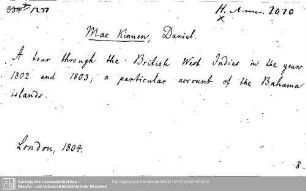 H. Amer. 2070
x
Mac Kinnon, Daniel.
A tour through the British West Indies in the years
1802 and 1803, a particular account of the Bahama
islands.
London, 1804.
8.